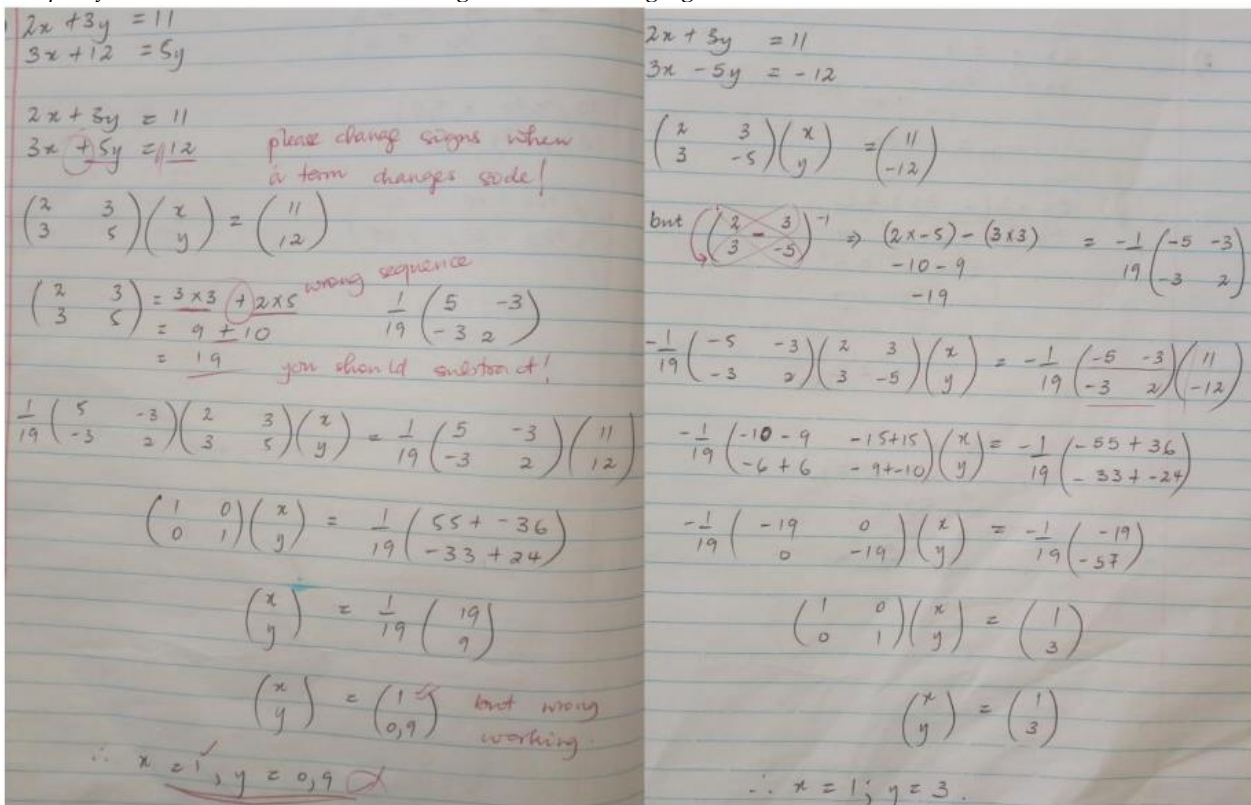 2x + 3y = 11
3x + 12 = 5y
2x + 3y = 11
3x + 5y = 12
please change signs when
a term changes side!
(2 3
3 5)(x
y) = (11
12)
(2 3
3 5) = 3 x 3 + 2 x 5 wrong sequence 1/19 (5 -3
-3 2)
= 9 + 10
= 19 you should substract!
1/19 (5 -3
-3 2)(2 3
3 5)(x
y) = 1/19 (5 -3
-3 2)(11
12)
(1 0
0 1)(x
y) = 1/19 (55 + -36
-33 + 24)
(x
y) = 1/19 (19
9)
(x
y) = (1
0,9) but wrong
working.
∴ x = 1, y = 0,9
2x + 3y = 11
3x - 5y = -12
(2 3
3 -5)(x
y) = (11
-12)
but (2 3
3 -5)⁻¹ ⇒ (2 x -5) - (3 x 3) = -1/19 (-5 -3
-3 2)
-10 - 9
-19
-1/19 (-5 -3
-3 2)(2 3
3 -5)(x
y) = -1/19 (-5 -3
-3 2)(11
-12)
-1/19 (-10 - 9 -15+15
-6 + 6 -9+-10)(x
y) = -1/19 (-55 + 36
-33 + -24)
-1/19 (-19 0
0 -19)(x
y) = -1/19 (-19
-57)
(1 0
0 1)(x
y) = (1
3)
(x
y) = (1
3)
∴ x = 1; y = 3.